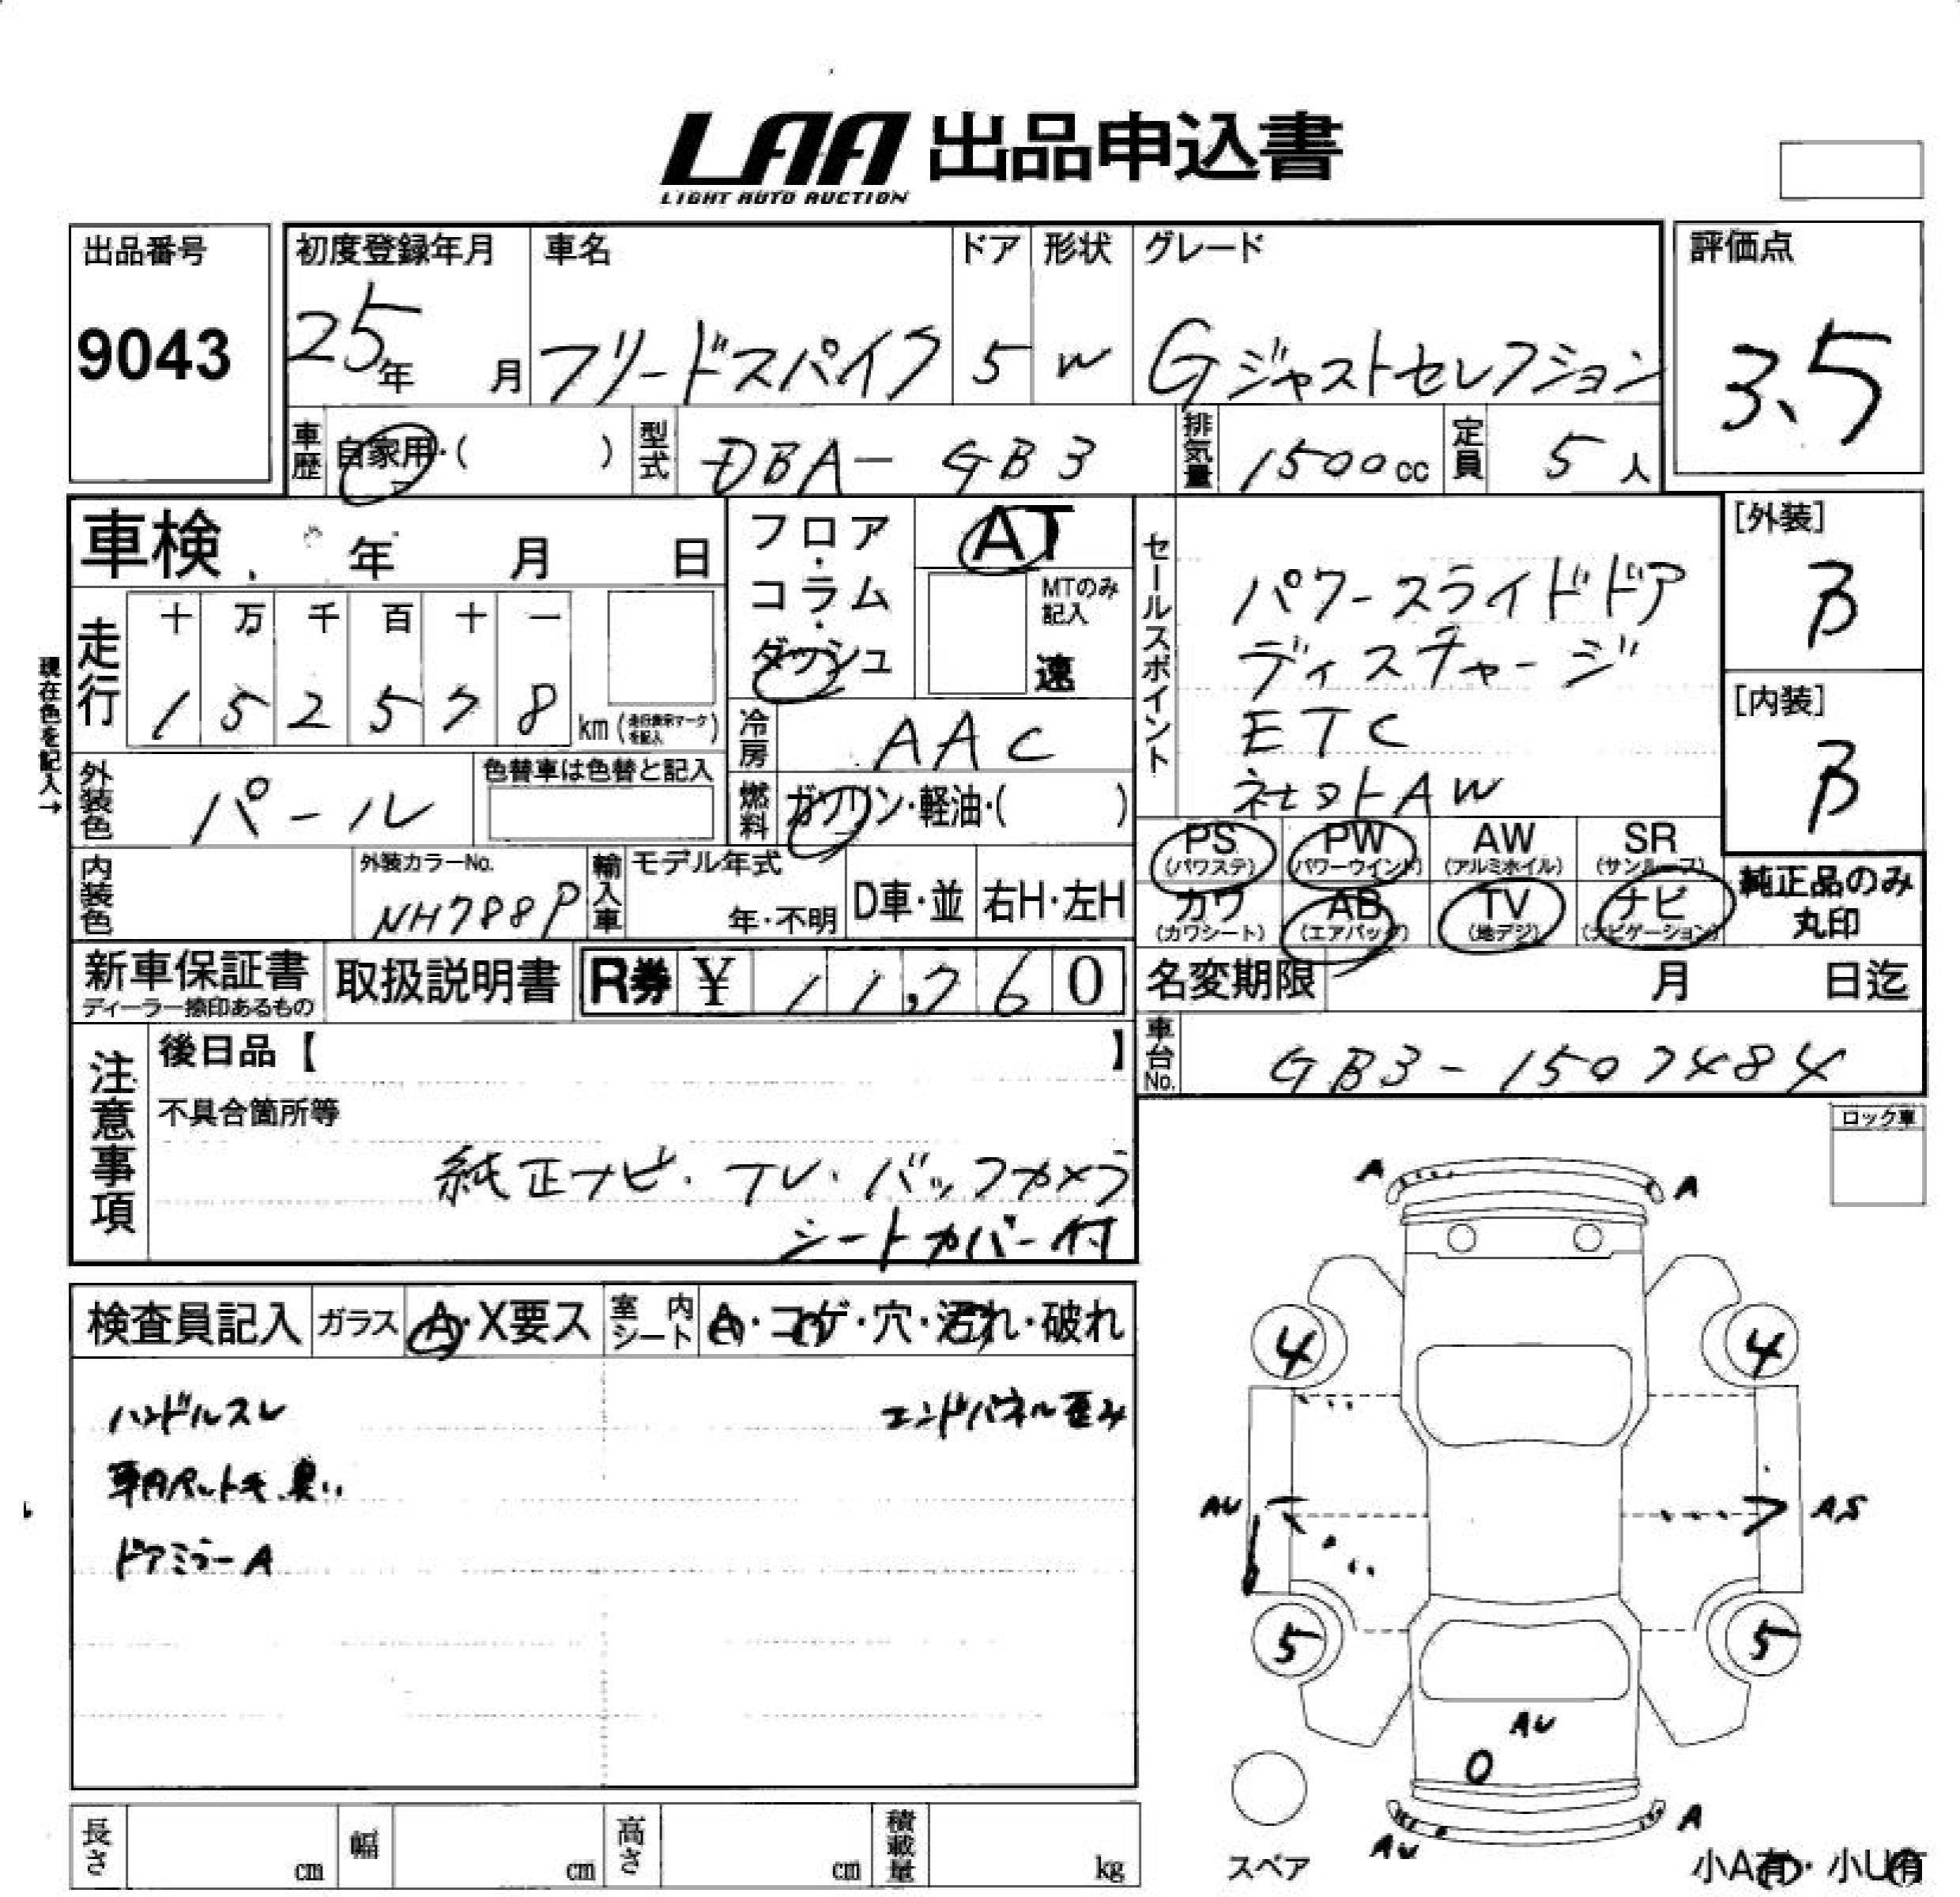 LAA 出品申込書
LIGHT AUTO AUCTION
出品番号
9043
初度登録年月
25年 月
車名
フリードスパイク
ドア
5
形状
W
グレード
Gジャストセレクション
評価点
3.5
車歴 自家用・( )
型式 DBA-GB3
排気量 1500cc
定員 5人
車検 年 月 日
フロア・コラム・ダッシュ
AT
MTのみ記入
速
セールスポイント
パワースライドドア
ディスチャージ
ETC
社外AW
[外装]
B
[内装]
B
現在色を記入→
走行
十 万 千 百 十 一
1 5 2 5 7 8 km (走行表示マークを記入)
冷房 AAC
外装色 パール
色替車は色替と記入
燃料 ガソリン・軽油・( )
PS (パワステ)
PW (パワーウインド)
AW (アルミホイル)
SR (サンルーフ)
カワ (カワシート)
AB (エアバッグ)
TV (地デジ)
ナビ (ナビゲーション)
純正品のみ丸印
内装色
外装カラーNo.
NH788P
輸入車 モデル年式
年・不明
D車・並
右H・左H
新車保証書
ディーラー捺印あるもの
取扱説明書
R券 ¥ 11,760
名変期限 月 日迄
車台No. GB3-1507484
注意事項
後日品【 】
不具合箇所等
純正ナビ・TV・バックカメラ
シートカバー付
ロック車
検査員記入
ガラス A・X要ス
室内シート A・コゲ・穴・汚れ・破れ
ハンドルスレ
エンドパネル歪み
車内ペット毛、臭い
ドアミラーA
A
A
4
4
AU
AS
5
5
AU
A
AU
スペア
小A有・小U有
長さ cm
幅 cm
高さ cm
積載量 kg